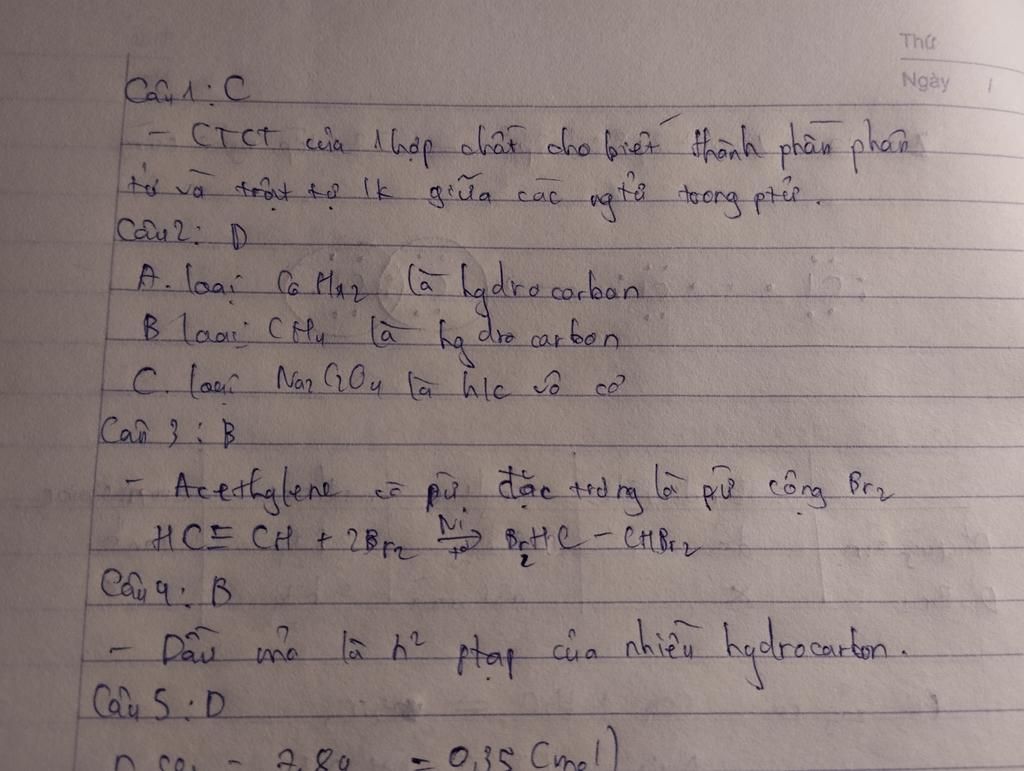 Thứ
Ngày
Câu 1: C
- CTCT của 1 hợp chất cho biết thành phần phân
tử và trật tự lk giữa các ngtử trong ptử.
Câu 2: D
A. loại C6H12 là hydrocarbon
B loại CH4 là hydrocarbon
C. loại là h/c vô cơ
Câu 3: B
- Acethylene có pứ đặc trưng là pứ cộng Br2
HC≡CH + 2Br2 Ni t° Br2HC - CHBr2
Câu 4: B
- Dầu mỏ là h² ptạp của nhiều hydrocarbon.
Câu 5: D
= 0,35 (mol)